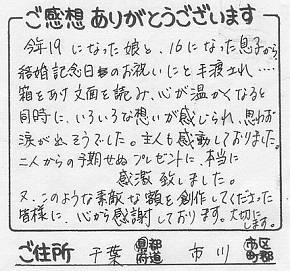 ご感想ありがとうございます
今年19になった娘と、16になった息子から
結婚記念日のお祝いにと手渡され‥‥
箱をあけ文面を読み、心が温かくなると
同時に、いろいろな想いが感じられ、思わず
涙が出そうでした。主人も感動しておりました。
二人からの予期せぬプレゼントに、本当に
感激致しました。
又、このような素敵な額を創作してくださった
皆様に、心から感謝しております。大切に
します。
ご住所 千葉 都道府県 市川 市区町郡